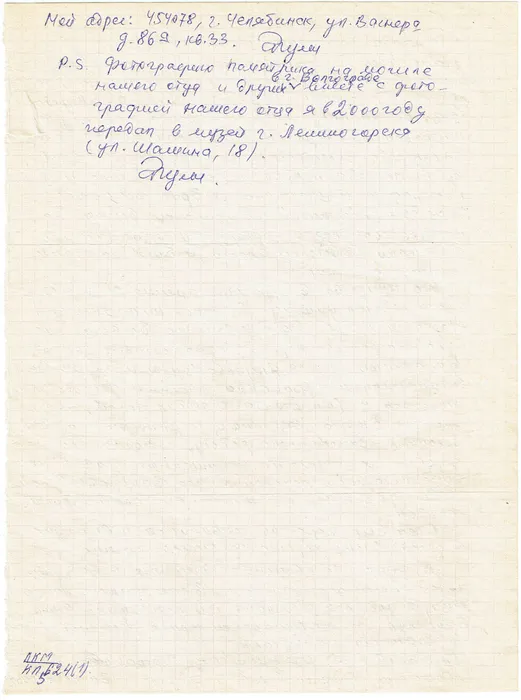 Мой адрес: 454078, г. Челябинск, ул. Вагнера
д. 86а, кв. 33.
P.S. Фотографию памятника на могиле
в г. Волгограде
нашего отца и других вместе с фото-
графией нашего отца я в 2000 году
передал в музей г. Лениногорска
(ул. Шашина, 18).
ЛКМ
5